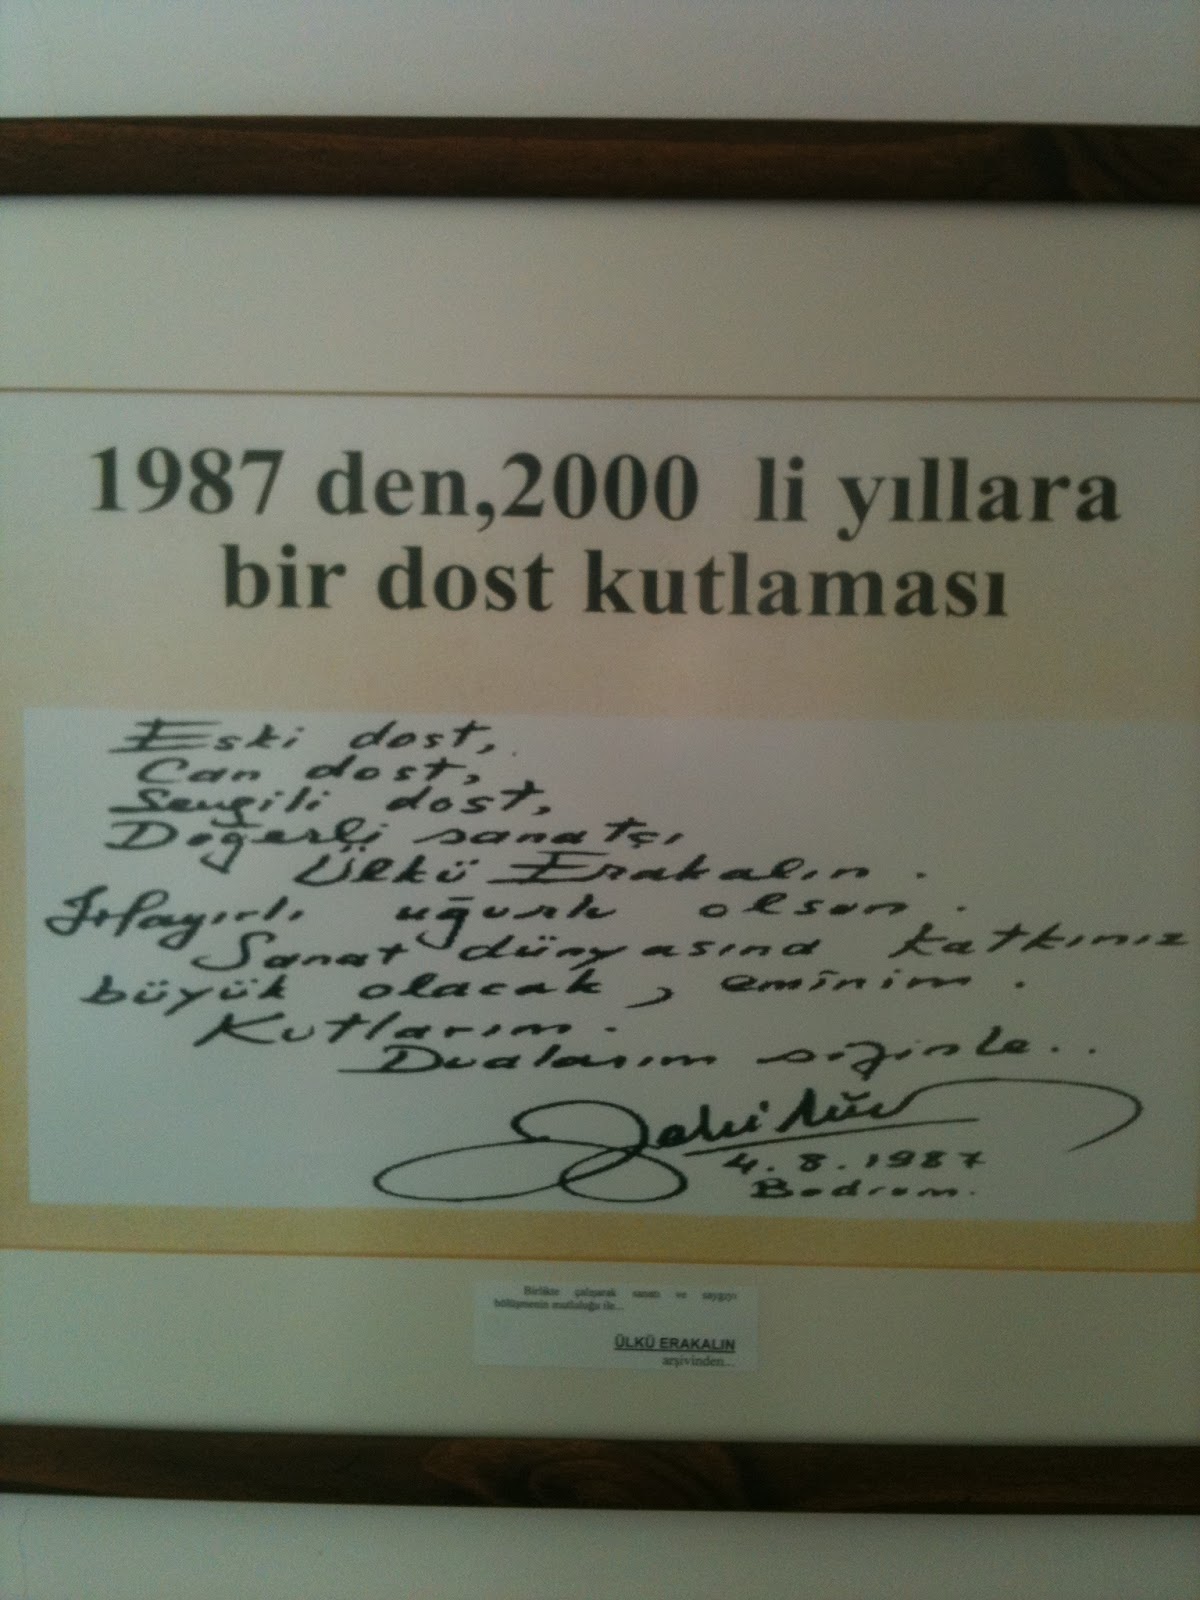 1987 den,2000 li yıllara
bir dost kutlaması
Eski dost,
Can dost,
Sevgili dost,
Değerli sanatçı
Ülkü Erakalın.
Hayırlı uğurlu olsun.
Sanat dünyasında katkınız
büyük olacak, eminim.
Kutlarım.
Dualarım sizinle..
Zeki Müren
4.8.1987
Bodrum.
Birlikte çalışarak sanatı ve saygıyı
bölüşmenin mutluluğu ile...
ÜLKÜ ERAKALIN
arşivinden...